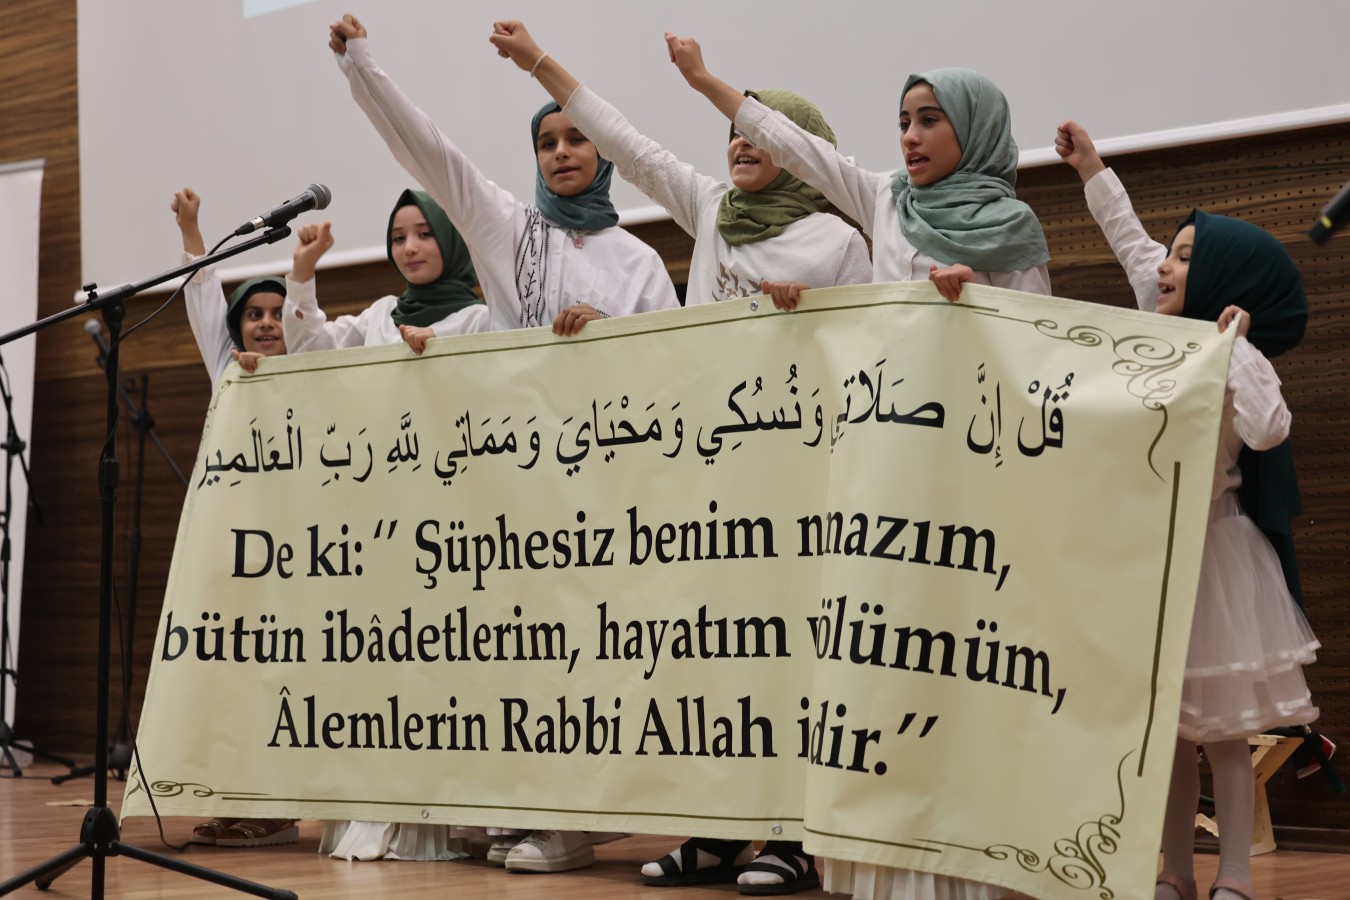 قُلْ إِنَّ صَلَاتِي وَنُسُكِي وَمَحْيَايَ وَمَمَاتِي لِلَّهِ رَبِّ الْعَالَمِينَ
De ki: ‘‘ Şüphesiz benim namazım,
bütün ibâdetlerim, hayatım ölümüm,
Âlemlerin Rabbi Allah içindir.’’